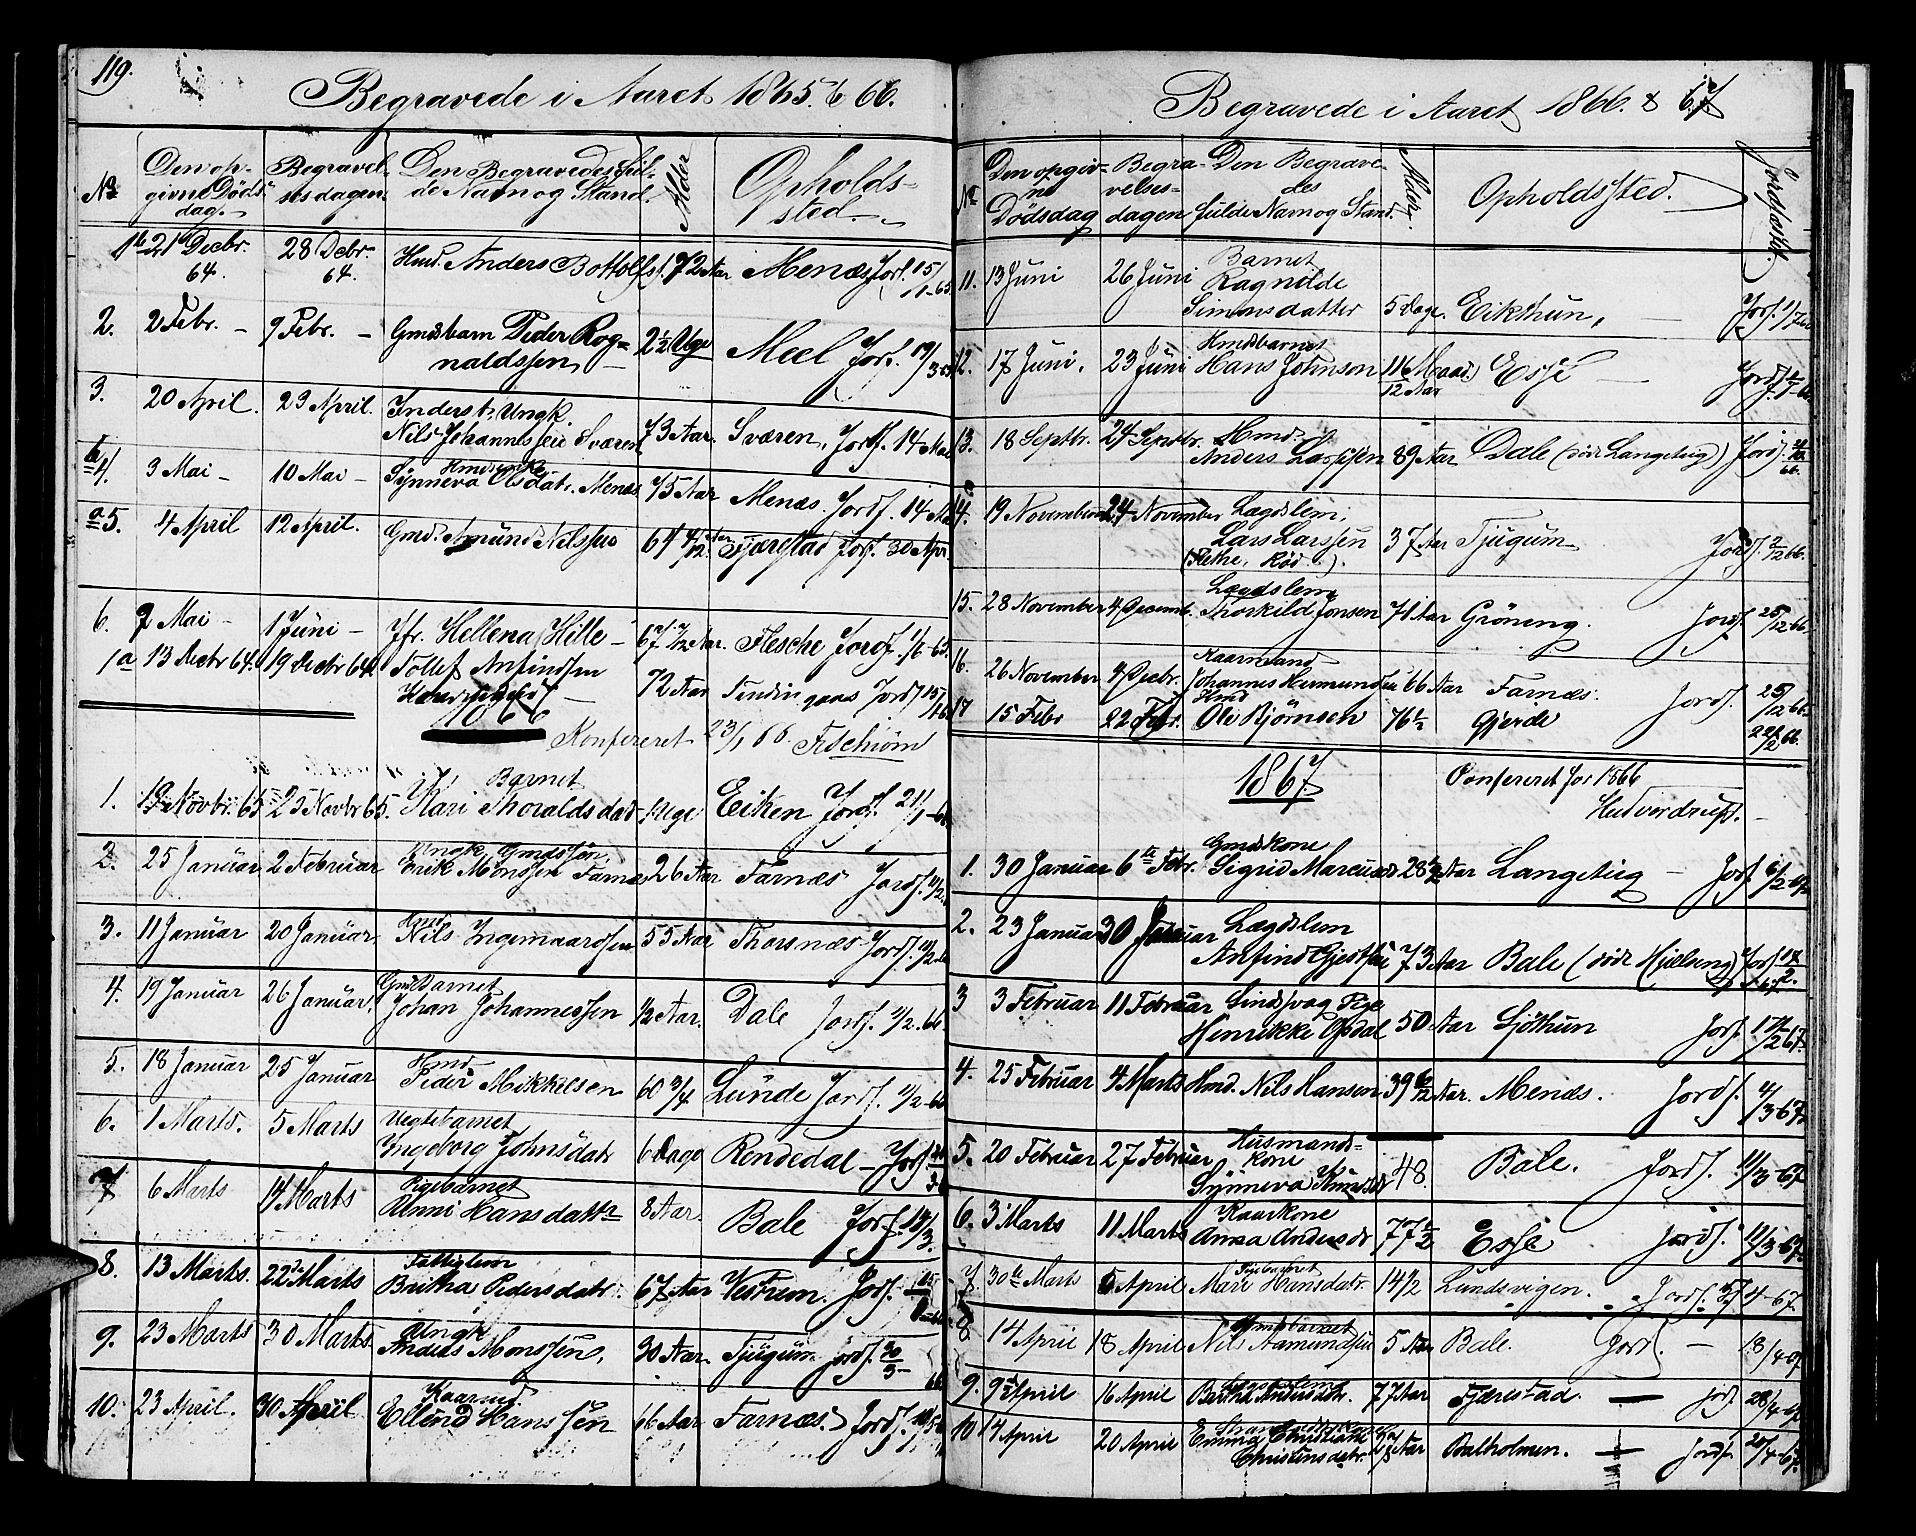 119.
Begravede i Aaret 1865 & 66.
No
Den opgivne Dødsdag.
Begravelsesdagen
Den Begravedes fulde Navn og Stand.
Alder
Opholdssted.
1b 21 Decbr. 64. 28 Decbr. 64. Hmd. Anders Bottolfs. 72 Aar Menæs Jordf. 15/1-65
2. 2 Febr. – 9 Febr. – Gmdsbarn Peder Rognaldssen – 2½ Uge Meel Jordf. 19/3
3. 20 April. 29 April. Inderst, Ungk. Nils Johannessen Sværen 73 Aar. Sværen, Jordf. 14 Mai
b 4. 3 Mai – 10 Mai – Synneva Olsdatr. Menæs 75 Aar Menæs Jordf. 14 Mai
a 5. 4 April 12 April. Gmd. Amund Nilssen 64 4/12 Aar Tjærestad Jordf. 30 Apr.
6. 7 Mai – 1 Juni – Jfr. Hellena Hille – 67 7/12 Aar. Flesche Jordf. 1/6-65.
1a 13 Decbr 64. 19 Decbr 64. Tollef Anfindsen 72 Aar Jordf 15/1-65
1866
Konfereret 23/1 66.
1. 19 Novbr. 65 25 Novbr 65. Barnet Kari Thoraldsdatr 1 Uge Eiken Jordf. 21/1-66
2. 25 Januar 2 Februar Ungk. Gmdssøn, Erik Monssen Farnæs 26 Aar Farnæs Jordf. 11/2.
3. 11 Januar 20 Januar Hmd Nils Ingemaardsen 55 Aar Thorsnæs Jordf. 11/2
4. 19 Januar 26 Januar. Gmdbarnet Johan Johannessen ½ Aar. Dale Jordf. 11/2.66
5. 18 Januar 25 Januar Hmd Peder Mikkelsen 60 3/4 Lunde Jordf. 11/2-66
6. 1 Marts. 5 Marts Uegtebarnet Ingeborg Johnsdatr 6 Dage Rendedal – Jordf
7 6 Marts 14 Marts Pigebarnet Unni Hansdattr 8 Aar. Bale Jordf. 18/3.
8. 13 Marts. 22de Marts Fattiglem Britha Pedersdatr. 67 Aar Vetrem. Jordf.
9. 23 Marts 30 Marts. Ungk Andreas Monssen, 30 Aar. Tjugum Jordf. 30/3-
10. 23 April. 30 April Kaarmd. Ellend Hanssen 66 Aar Farnæs. Jordf.
Begravede i Aaret 1866. & 67
No
Den opgivne Dødsdag
Begravelsesdagen
Den Begravedes fulde Navn og Stand.
Alder.
Opholdssted.
Jordfæstet.
11. 13 Juni 26 Juni Barnet Ragnilde Simonsdatter 5 Dage. Eikthun, – Jordf. 1/7
12. 17 Juni. 23 Juni Hmdbarnet Hans Johnson 11 Maad. 12 Aar Esse – Jordf.
13. 18 Septbr. 24 Septbr. Hmd. Anders Larssen 89 Aar Dale (død Langeteig) Jordf. 66.
14. 19 November 24 November Lægdslem, Lars Larssen 37 Aar Tjugum Jordf. 2/12 66.
15. 28 November 4 Decemb. Lægdslem Thorkild Jonsen 71 Aar Grøneng. Jordf. 25/12-66.
16. 26 November 4 Decbr. Kaarmand Johannes Hermundsen 66 Aar Farnæs. Jordf. 25/12-66.
17 15 Febr 22 Febr. Hmd Ole Bjørnsen 76½ Gjerde 22/2 66.
1867
Confereret for 1866
Hudverdrup.
1. 30 Januar 6te Febr. Gmdskone Sigrid Marcusdr 28½ Aar Langeteig – Jordf 6/2-67
2. 23 Januar 30 Januar Lægdslem Anfind Gjestsen 73 Aar Bale (død Hjelleng) Jordf 17/2.
3 3 Februar 11 Februar Sindsvag Pige Henrikke Opdal 50 Aar Sjøthun Jordf. 17/2 67.
4. 25 Februar 4 Marts Hmd. Nils Hansen 39 6/12 Aar. Menæs. Jordf. 4/3-67.
5. 20 Februar 27 Februar Husmandskone Synneva Knudsdr 48. Bale. Jordf. 11/3-67
6. 3 Marts 11 Marts Kaarkone Anna Andersdr 77½ Esse Jordf. 11/3-67
7 30te Marts 5 April Pigebarnet Mari Hansdatr. 14½ Lundsvigen. Jordf. 5/4-67.
8. 14 April 18 April Gmdsbarnet Nils Aamundsen 5 Aar Bale. Jordf. – 18/4-67
9. 9de April 16 April Lægdslem Britha Andersdatr. 77 Aar Tjærestad. – Jordf. 28/4-67
10 14 April 20 April Emma Christiane Christensdatr. Aar Balholmen. Jordf. 20/4-67.